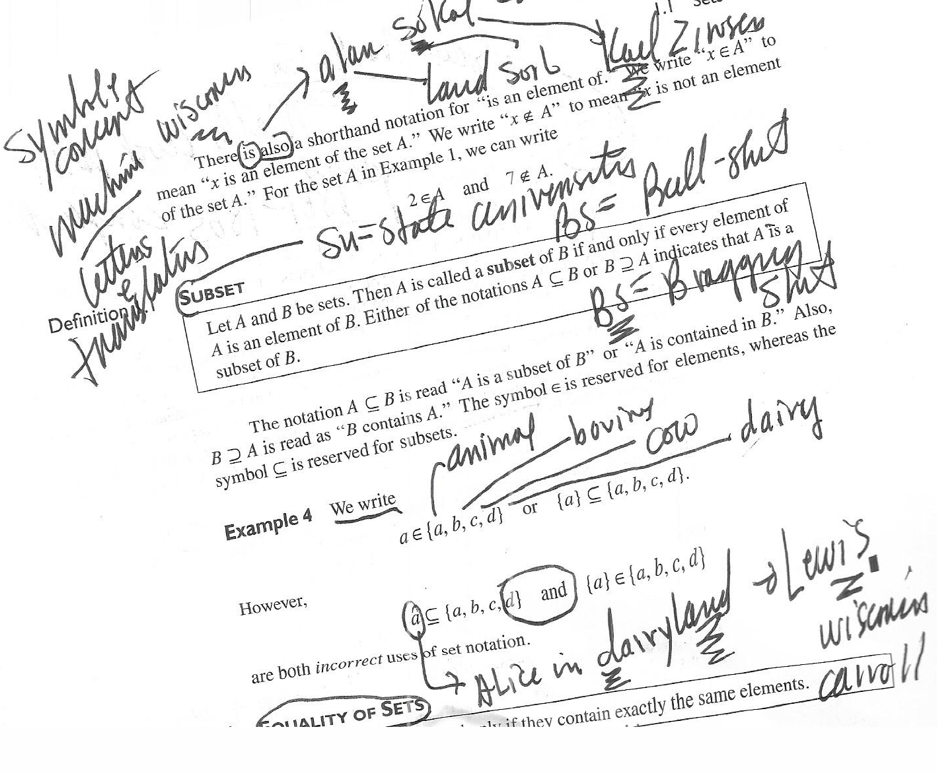 1.1 Sets
alan sokal
Karl Zinsen
land sorb
symbols
concept
wisconsin
machine
There is also a shorthand notation for “is an element of.” We write “x ∈ A” to
mean “x is an element of the set A.” We write “x ∉ A” to mean “x is not an element
of the set A.” For the set A in Example 1, we can write
2 ∈ A and 7 ∉ A.
letters
&
translates
Su = state universities
BS = Bull-shit
Definition
SUBSET
Let A and B be sets. Then A is called a subset of B if and only if every element of
A is an element of B. Either of the notations A ⊆ B or B ⊇ A indicates that A is a
subset of B.
BS = Bragging
shit
The notation A ⊆ B is read “A is a subset of B” or “A is contained in B.” Also,
B ⊇ A is read as “B contains A.” The symbol ∈ is reserved for elements, whereas the
symbol ⊆ is reserved for subsets.
animal bovine cow dairy
Example 4 We write
a ∈ {a, b, c, d} or {a} ⊆ {a, b, c, d}.
However,
a ⊆ {a, b, c, d} and {a} ∈ {a, b, c, d}
are both incorrect uses of set notation.
Alice in dairyland → Lewis
wisconsin
carroll
EQUALITY OF SETS
if they contain exactly the same elements.